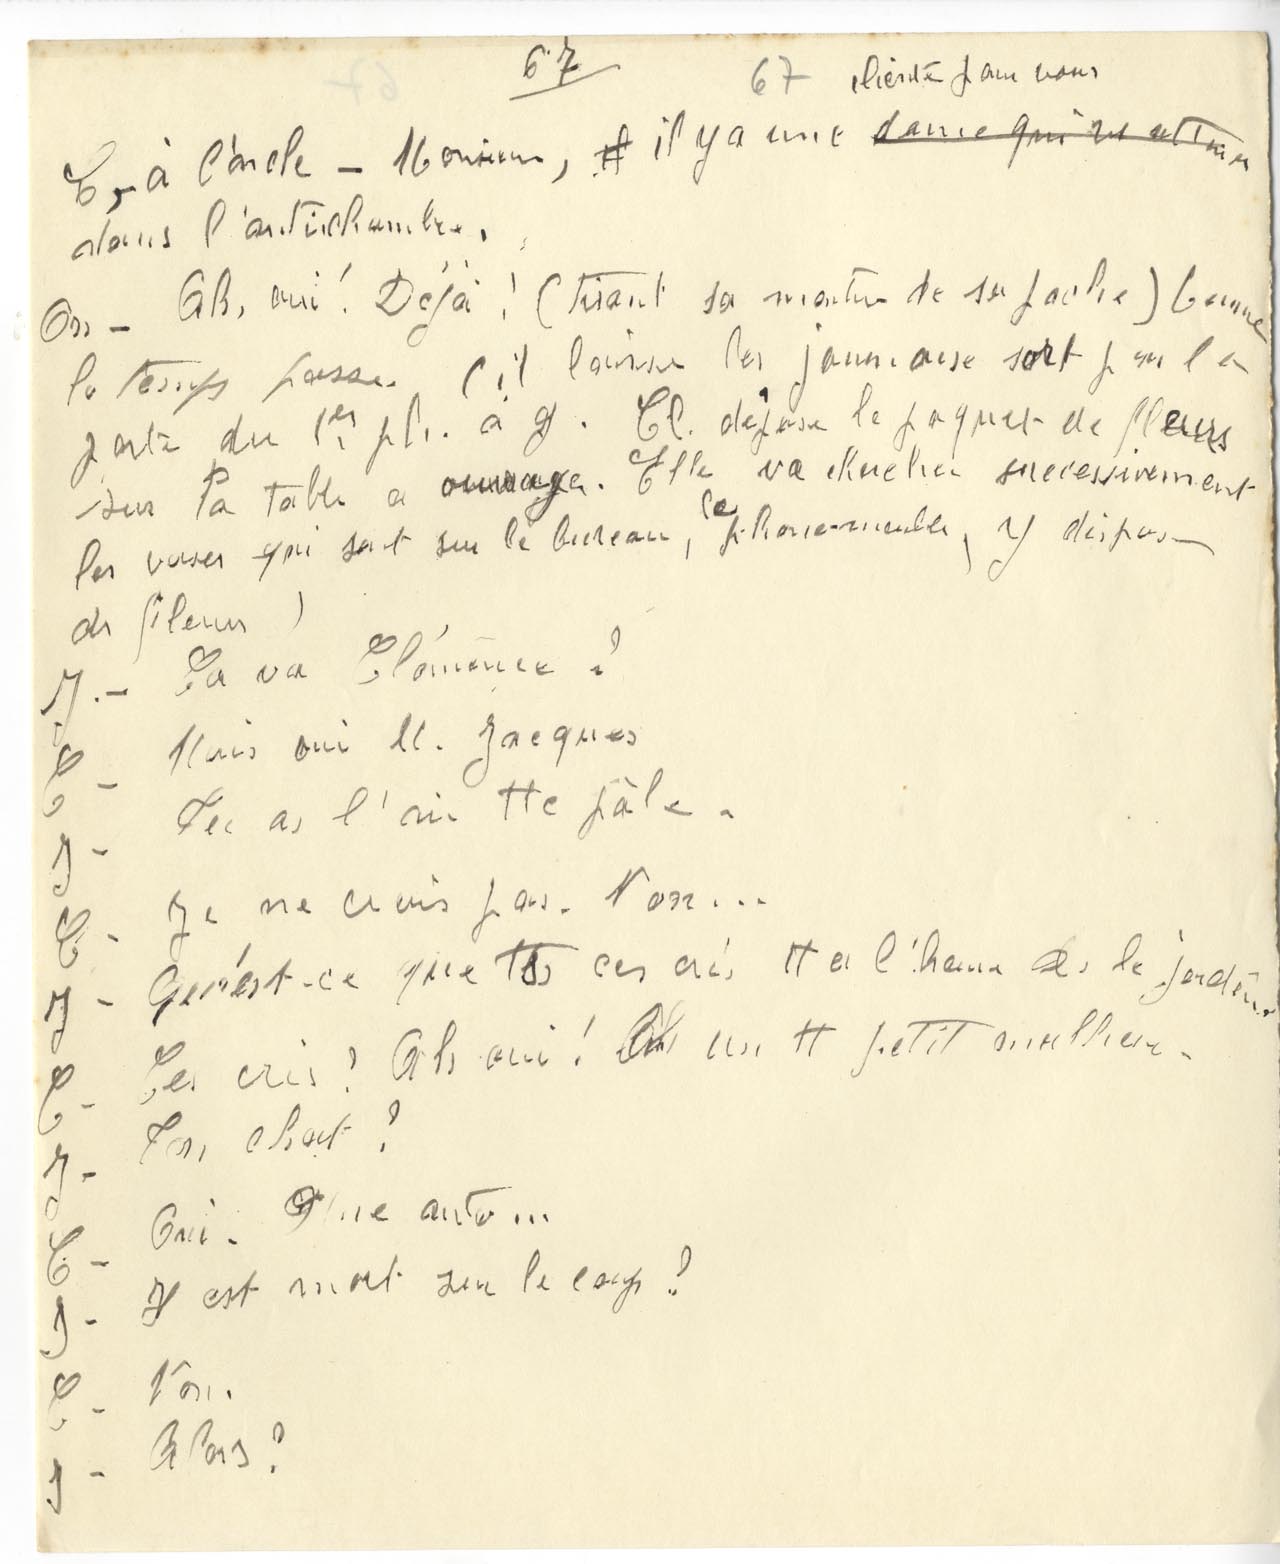 67
67 cliente pour vous
C, à l'oncle – Monsieur, il y a une dame qui vs attend
dans l'antichambre.
On – Ah, oui! Déjà! (tirant sa montre de sa poche) Comme
le temps passe. (il laisse les journaux sort par la
porte du 1er pl. à g. Cl. dépose le paquet de fleurs
sur la table a ouvrage. Elle va chercher successivement
les vases qui sont sur le bureau, le phono-meuble, y dispose
des fleurs)
J. – Ça va Clémence?
C – Mais oui M. Jacques
J – Tu as l'air tte pâle.
C – Je ne crois pas. Non...
J – Qu'est-ce que ts ces cris tt à l'heure ds le jardin.
C – Ces cris? Ah oui! un tt petit malheur.
J – Ton chat?
C – Oui. Une auto...
J – Il est mort sur le coup?
C – Non.
J – Alors?